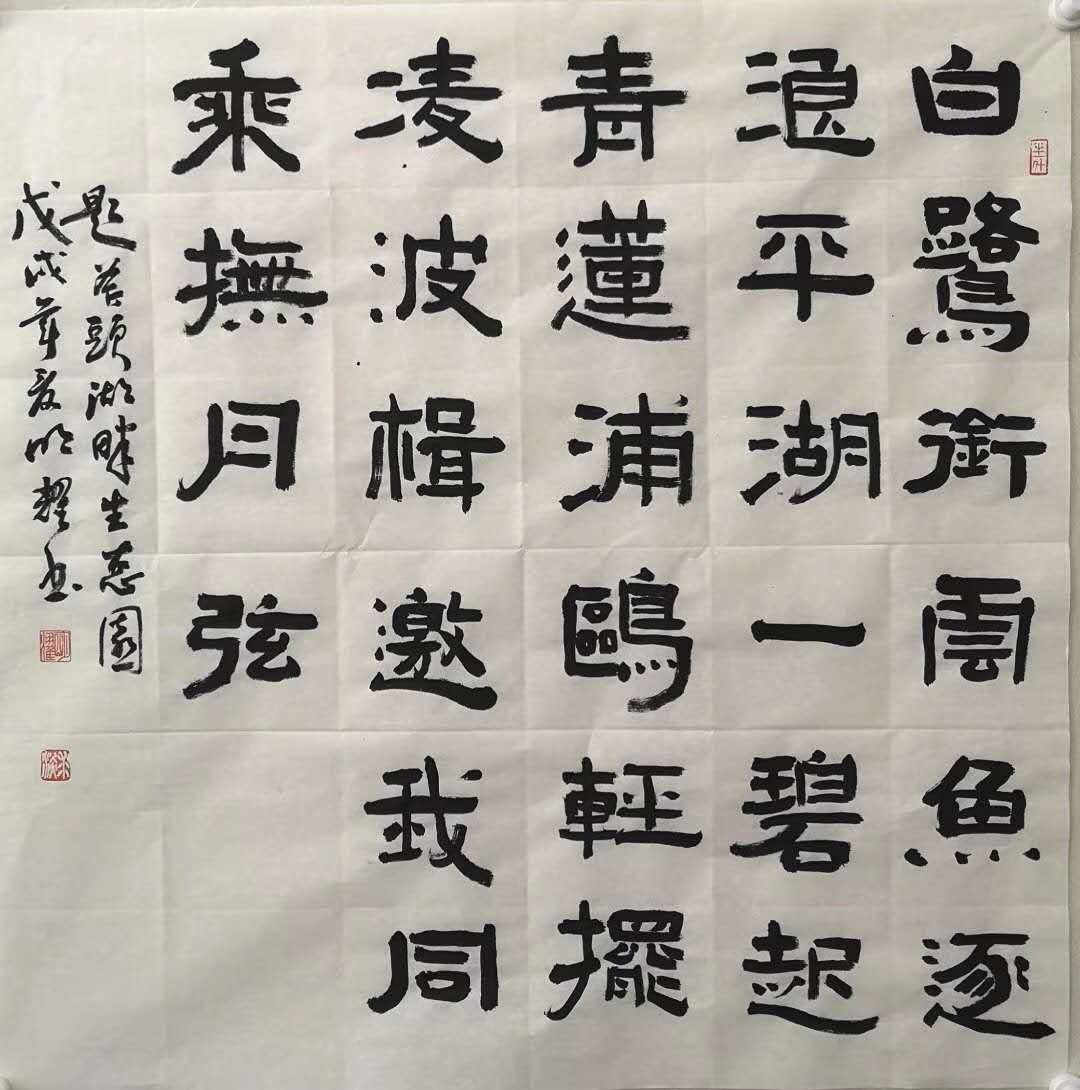 白鷺銜雲魚逐
浪平湖一碧起
青蓮浦鷗輕擺
凌波楫邀我同
乘撫月弦
題頭湖畔生态園
戊戌年夏明耀书